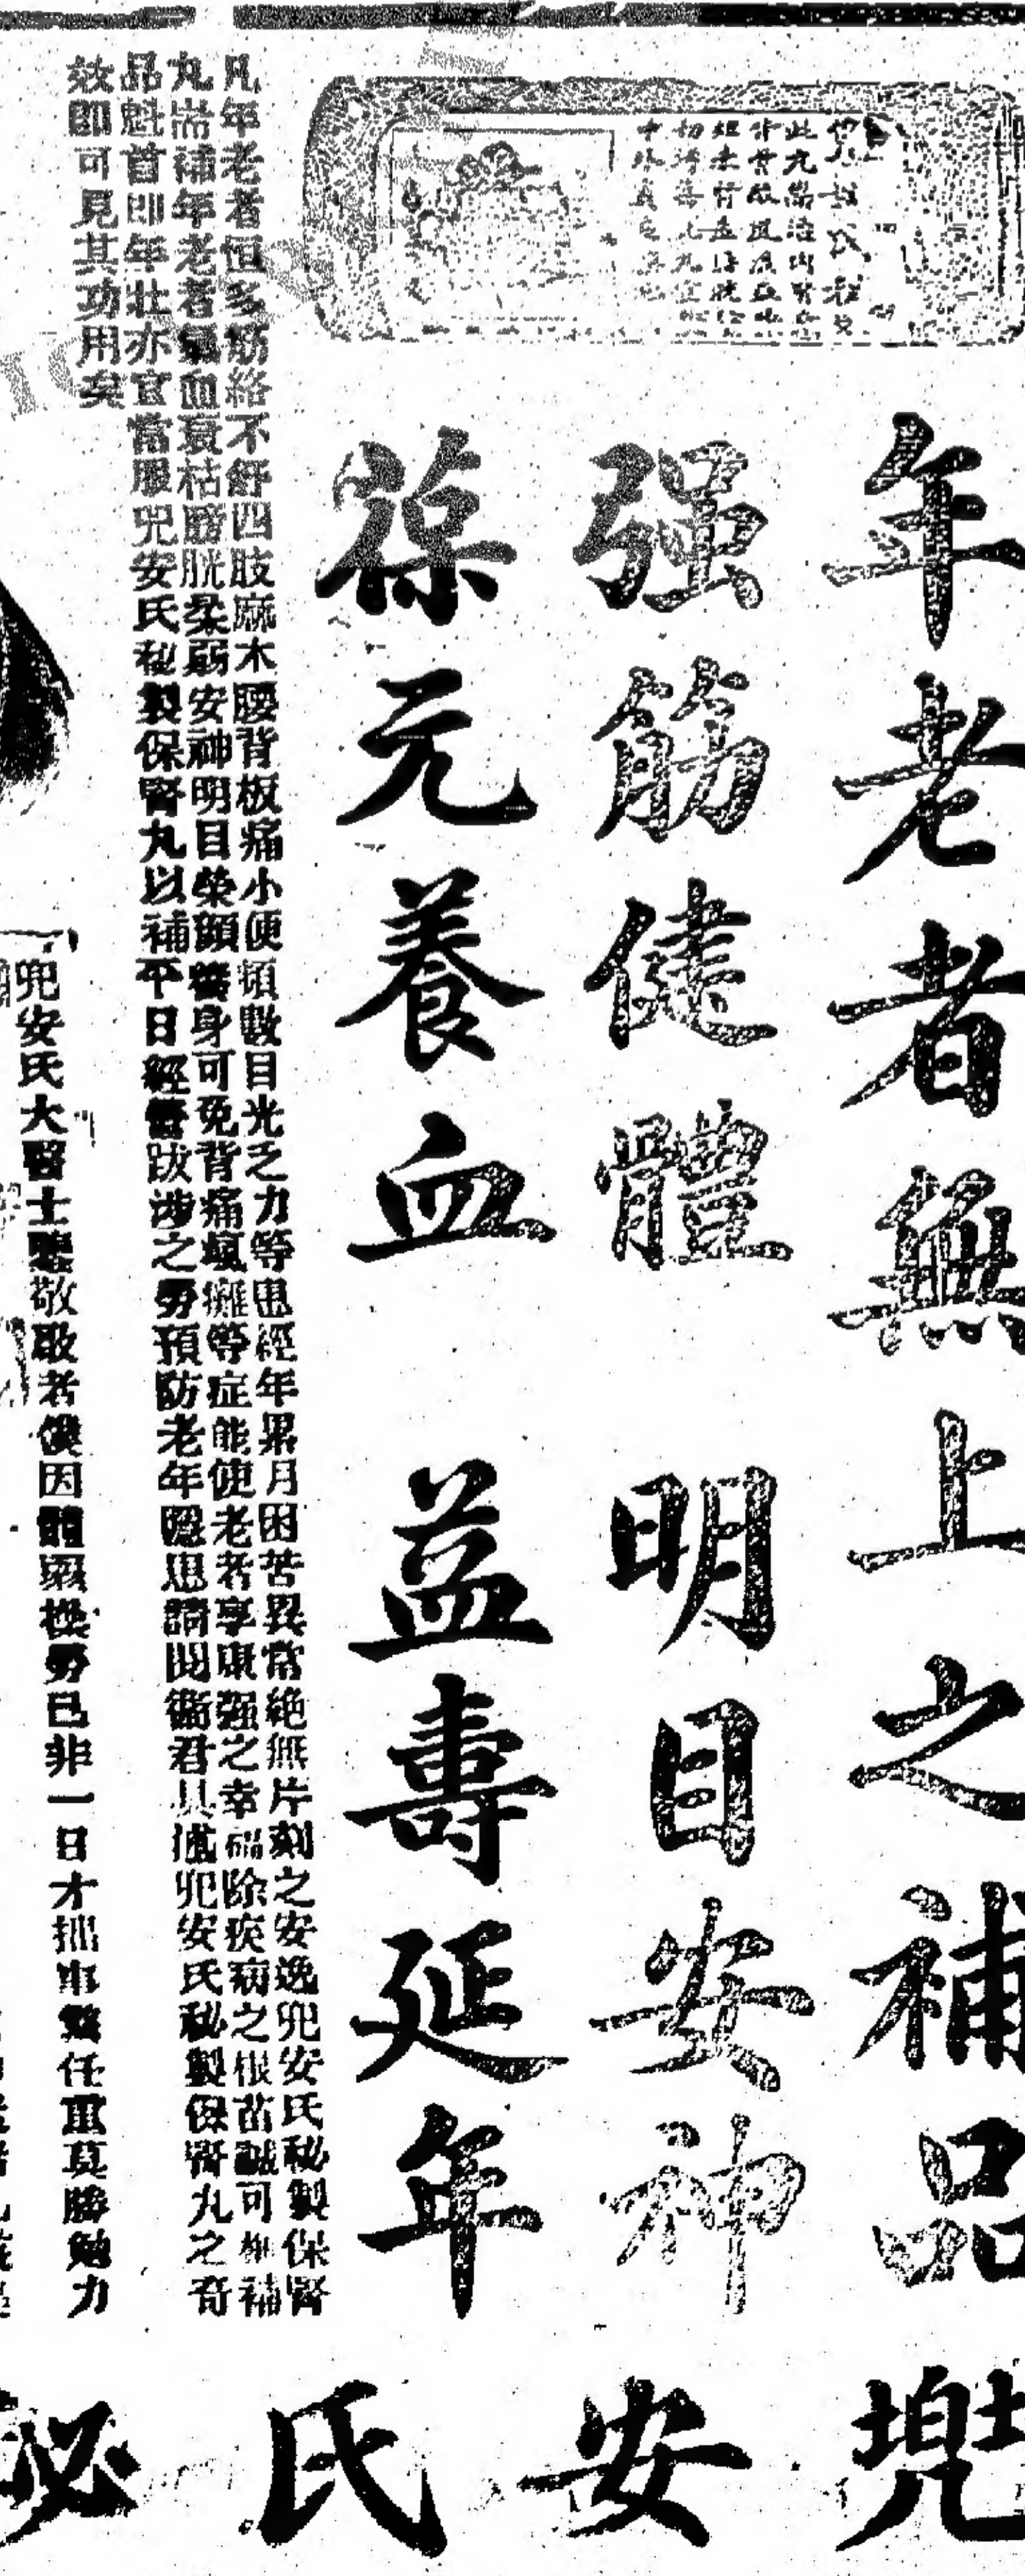 年老者無上之補品
强筋健體 明目安神
葆元養血 益壽延年
凡年老者恒多筋絡不舒四肢麻木腰背板痛小便頻數目光乏力等患經年累月困苦異常絶無片刻之安逸兜安氏秘製保腎
丸耑補年老者氣血衰枯膀胱柔弱安神明目榮顔養身可免背痛瘋癱等症能使老者享康强之幸福除疾病之根苗誠可稱補
品魁首即年壯亦宜常服兜安氏秘製保腎丸以補平日經營跋涉之勞預防老年隱患請閱衞君具傳兜安氏秘製保腎丸之奇
效即可見其功用矣
兜安氏大醫士鑒敬啟者僕因體弱操勞已非一日才拙事繁任重莫勝勉力
兜安氏秘